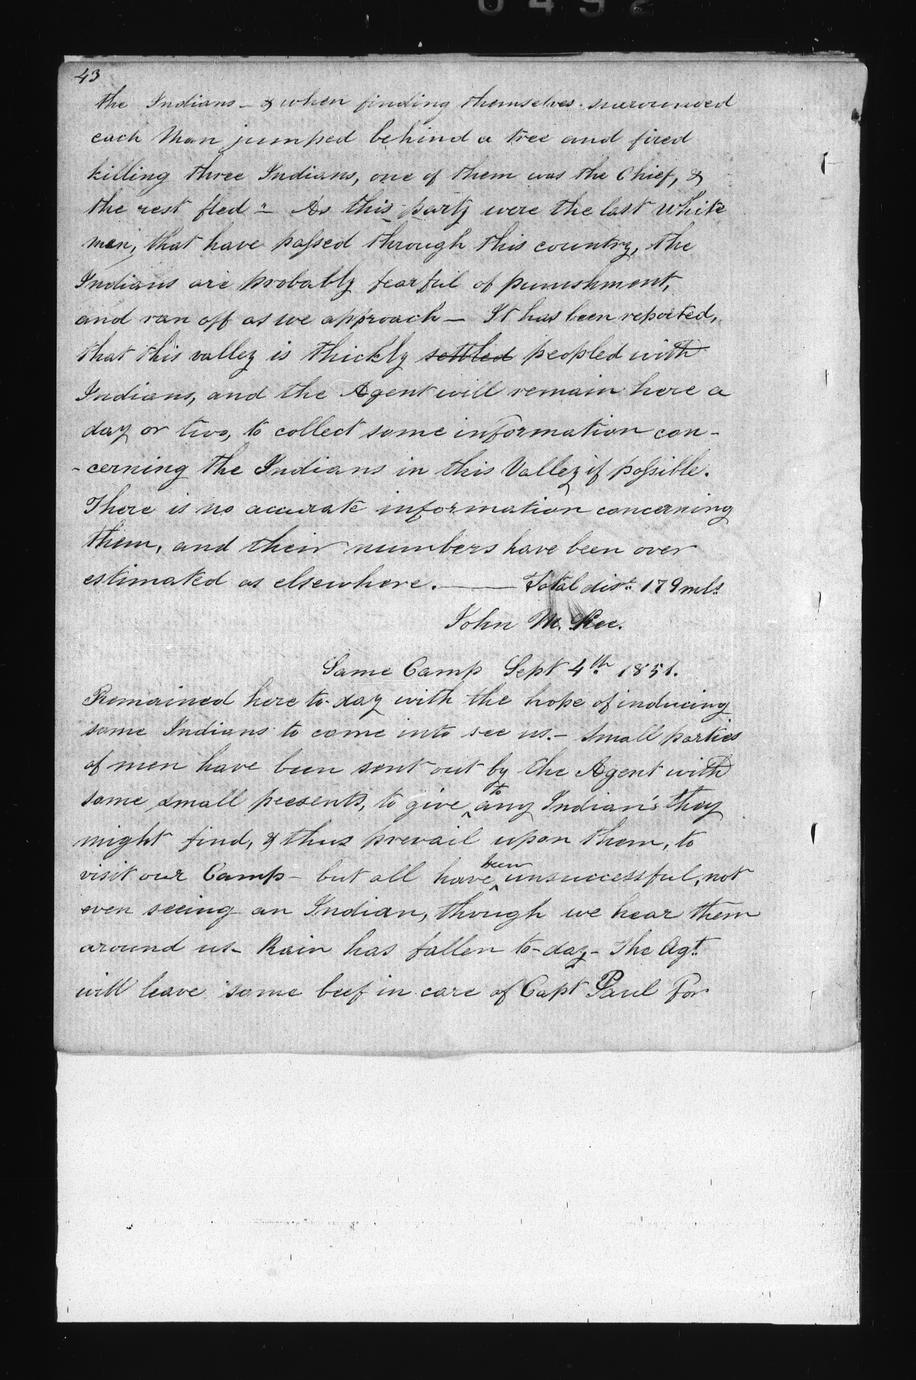 0492
43
the Indians - & when finding themselves surrounded
each man jumped behind a tree and fired
killing three Indians, one of them was the Chief, &
the rest fled - As this party were the last White
men, that have passed through this country, the
Indians are probably fearful of punishment,
and ran off as we approach - It has been reported,
that this valley is thickly settled peopled with
Indians, and the Agent will remain here a
day or two, to collect some information con-
-cerning the Indians in this Valley if possible.
There is no accurate information concerning
them, and their numbers have been over
estimated as elsewhere. —— Total dist. 179 mls
John McKee.
Same Camp Sept 4th 1851.
Remained here to-day with the hope of inducing
some Indians to come into see us. - Small parties
of men have been sent out by the Agent with
some small presents, to give ^to any Indian's they
might find, & thus prevail upon them, to
visit our Camp - but all have ^been unsuccessful, not
even seeing an Indian, though we hear them
around us - Rain has fallen to-day - The Agt.
will leave some beef in care of Capt Paul for